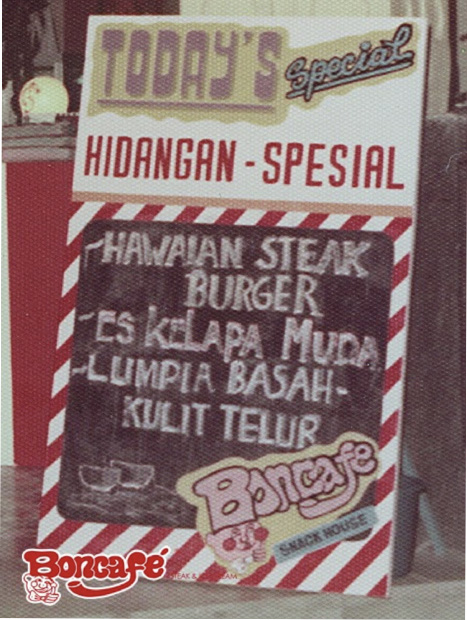 TODAY'S Special
HIDANGAN - SPESIAL
-HAWAIAN STEAK
BURGER
-ES KELAPA MUDA
-LUMPIA BASAH-
KULIT TELUR
Boncafe
SNACK HOUSE
Boncafé
STEAK &